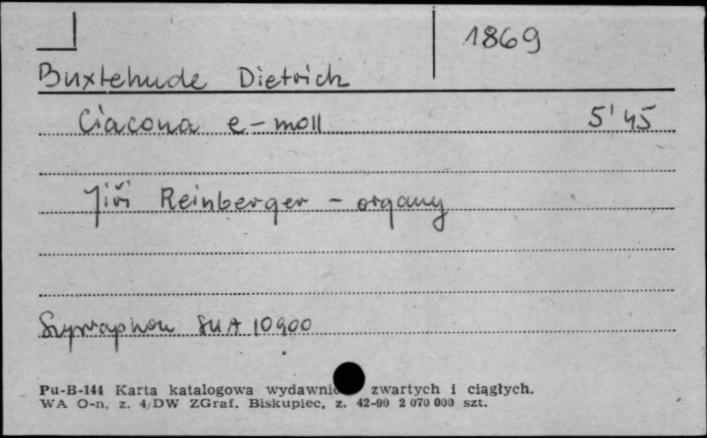 1869
Buxtehude Dietrich
Ciacona e-moll 5'45
Jiři Reinberger - organy
Supraphon SUA 10900
Pu-B-144 Karta katalogowa zwartych i ciągłych.
WA O-n, z. 4/DW ZGraf. Biskupiec, z. 42-90 2 070 000 szt.